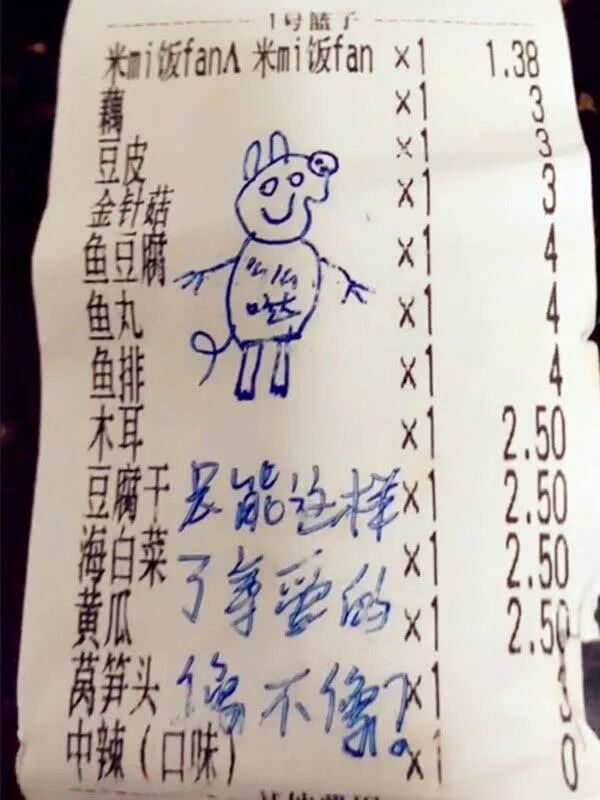 1号篮子
米mi饭fanΛ 米mi饭fan x1 1.38
藕 x1 3
豆皮 x1 3
金针菇 x1 3
鱼豆腐 x1 4
鱼丸 x1 4
鱼排 x1 4
木耳 x1 2.50
豆腐干 x1 2.50
海白菜 x1 2.50
黄瓜 x1 2.50
莴笋头 x1 3
中辣（口味） x1 0
么么
哒
只能这样
了亲爱的
像不像？